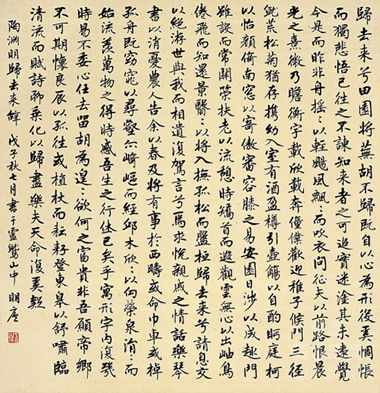 歸去来兮田園將蕪胡不歸既自以心為形役奚惆悵
而獨悲悟已往之不諫知来者之可追實迷途其未遠覺
今是而昨非舟搖〻以輕颺風飄〻而吹衣問征夫以前路恨晨
光之熹微乃瞻衡宇載欣載奔僮僕歡迎稚子候門三徑
就荒松菊猶存攜幼入室有酒盈樽引壺觴以自酌眄庭柯
以怡顏倚南窗以寄傲審容膝之易安園日涉以成趣門
雖設而常關策扶老以流憩時矯首而遐觀雲無心以出岫鳥
倦飛而知還景翳〻以將入撫孤松而盤桓歸去来兮請息交
以絕游世與我而相遺復駕言兮焉求悅親戚之情話樂琴
書以消憂農人告余以春及將有事於西疇或命巾車或棹
孤舟既窈窕以尋壑亦崎嶇而經邱木欣〻以向榮泉涓〻而
始流羨萬物之得時感吾生之行休已矣乎寓形宇內復幾
時曷不委心任去留胡為遑〻欲何之富貴非吾願帝鄉
不可期懷良辰以孤往或植杖而耘耔登東皋以舒嘯臨
清流而賦詩聊乘化以歸盡樂夫天命復奚疑
陶淵明歸去来辭 戊子秋月書于靈鷲山中 明